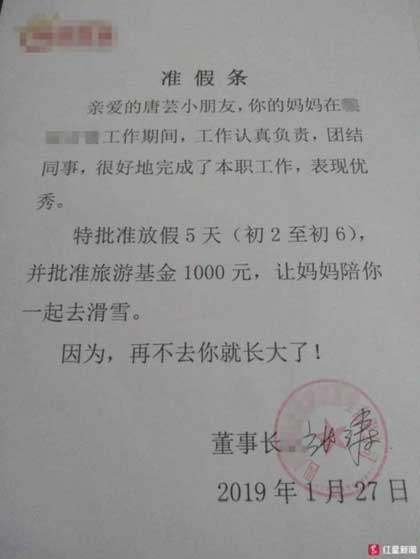 准假条
亲爱的唐芸小朋友，你的妈妈在
工作期间，工作认真负责，团结
同事，很好地完成了本职工作，表现优
秀。
特批准放假5天（初2至初6），
并批准旅游基金1000元，让妈妈陪你
一起去滑雪。
因为，再不去你就长大了！
董事长
2019年1月27日
红星新闻